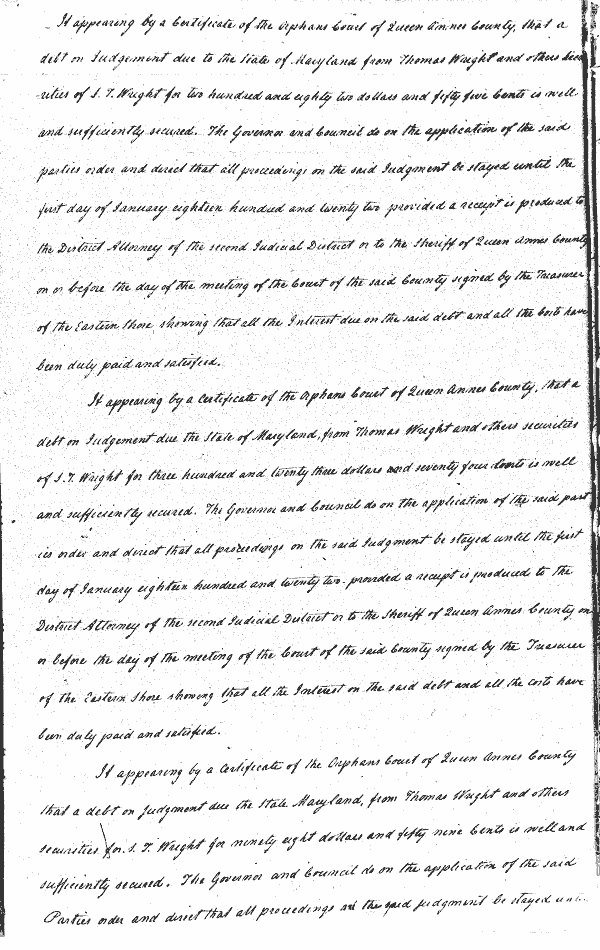 It appearing by a Certificate of the Orphans Court of Queen Annes County, that a
debt on Judgement due to the State of Maryland from Thomas Wright and others Secu
rities of S. T. Wright for two hundred and eighty two dollars and fifty five Cents is well
and sufficiently secured. The Governor and Council do on the application of the said
parties order and direct that all proceedings on the said Judgment be stayed until the
first day of January eighteen hundred and twenty two provided a receipt is produced to
the District Attorney of the second Judicial District or to the Sheriff of Queen Annes County
on or before the day of the meeting of the Court of the said County signed by the Treasurer
of the Eastern shore showing that all the Interest due on the said debt and all the Costs have
been duly paid and satisfied.
It appearing by a Certificate of the Orphans Court of Queen Annes County, that a
debt on Judgement due the State of Maryland, from Thomas Wright and others securities
of S. T. Wright for three hundred and twenty three dollars and seventy four Cents is well
and sufficiently secured. The Governor and Council do on the application of the said part
ies order and direct that all proceedings on the said Judgment be stayed until the first
day of January eighteen hundred and twenty two provided a receipt is produced to the
District Attorney of the second Judicial District or to the Sheriff of Queen Annes County on
or before the day of the meeting of the Court of the said County signed by the Treasurer
of the Eastern Shore showing that all the Interest on the said debt and all the costs have
been duly paid and satisfied.
It appearing by a Certificate of the Orphans Court of Queen Annes County
that a debt on Judgment due the State Maryland, from Thomas Wright and others
securities for S. T. Wright for ninety eight dollars and fifty nine Cents is well and
sufficiently secured. The Governor and Council do on the application of the said
Parties order and direct that all proceedings on the said Judgment be stayed unti